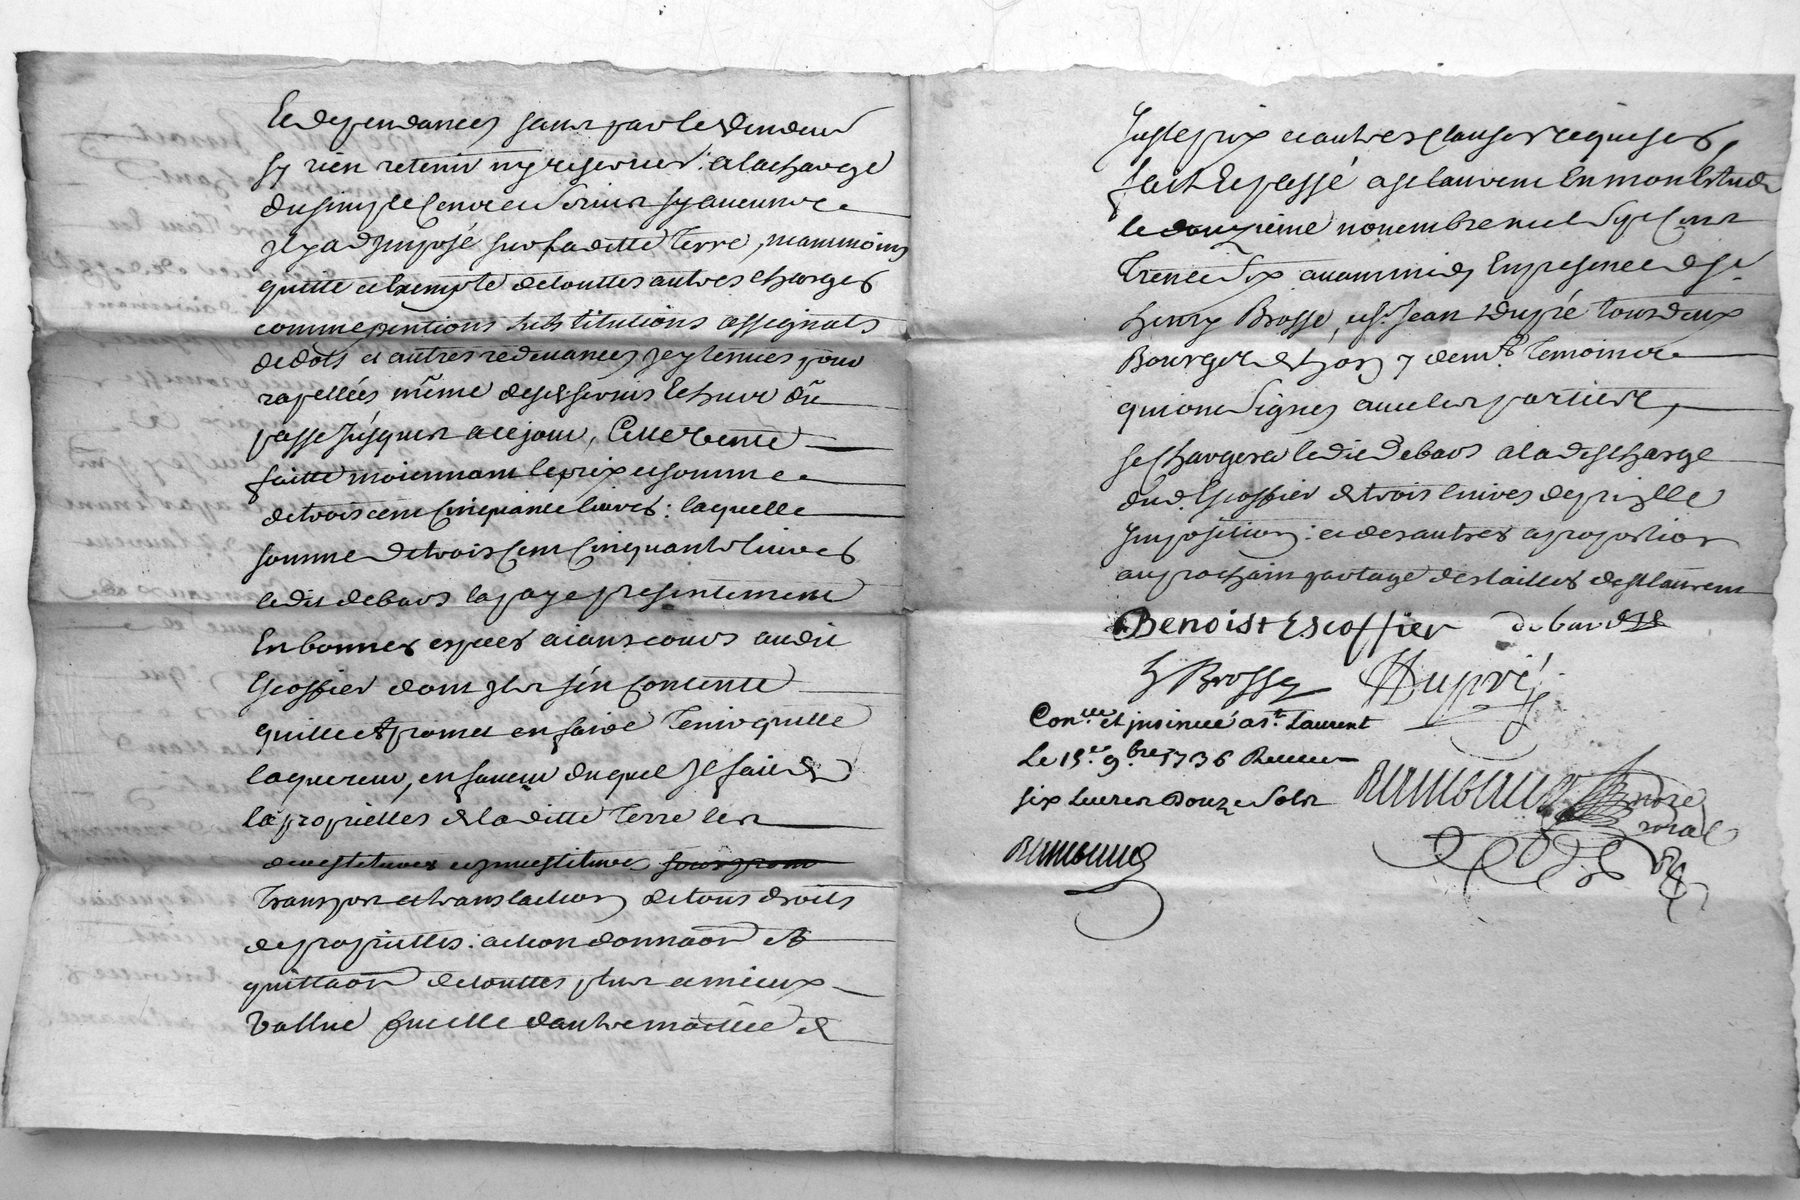 Et dependances sans par le Vendeur
sy rien retenir ny reserver : a la charge
du simple Cens et servis sy aucun
Il y a d'Imposé sur la ditte Terre, neanmoins
quitte et exempte de touttes autres charges
comme pentions substitutions assignats
de dots et autres redevances Jcy tenues pour
rapellées même desd servis Echeus du
passé Jusques a ce jour, Cette vente
faitte moiennant le prix et somme
de trois cent Cinquante livres : laquelle
somme de trois Cent Cinquante livres
ledit debars la paye presentement
En bonnes especes aians cours audit
Escoffier dont Il sen Contente
quitte et promet en faire Tenir quitte
laquereur, en faveur duquel Il fait de
la proprietté de la ditte Terre les
devestitures et jnvestitures
Transport et translation de tous droits
de propriettés : action donnaon et
quittaon de touttes plus et mieux
Vallue quelle d'autre moitié de
Juste prix et autres clauses requises,
fait Et passé a st laurent En mon Etude
le douzième novembre mil Sept Cent
Trente Six avant midy En presence de sr
henry Brosse, et sr Jean Dupré tous deux
Bourgeois de y demt Temoins
qui ont Signés avec les parties,
se chargera ledit Debars a la descharge
dud. Escoffier de trois livres de principalle
Imposition : et des autres a proportion
au prochain partage des tailles de st laurent
Benoist Escoffier debars
h Brosse JDupré
Con.lle et jnsinué a st. Laurent
Le 15.e 9.bre 1736 Receu
six Livres Douze Sols
nore
roial